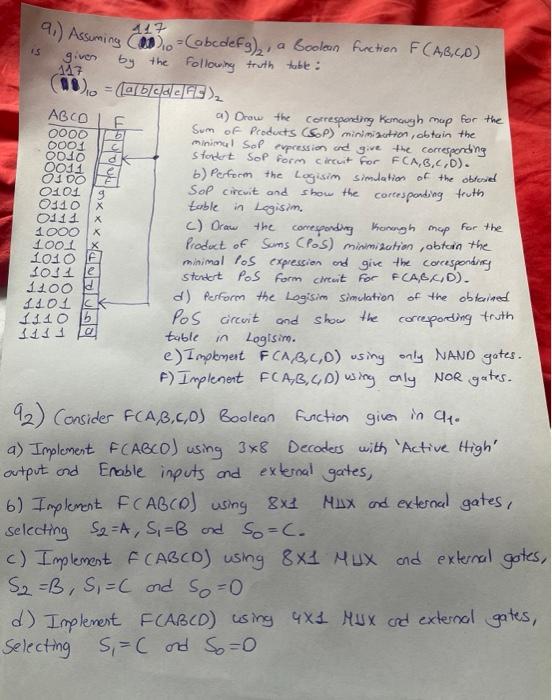 117
q1) Assuming ( )10 = (abcdefg)2, a Boolean function F(A,B,C,D)
is given by the following truth table:
117
( )10 = (|a|b|c|d|e|f|g|)2
ABCD | F
0000 b
0001 c
0010 d
0011 e
0100 f
0101 g
0110 x
0111 x
1000 x
1001 x
1010 f
1011 e
1100 d
1101 c
1110 b
1111 a
a) Draw the corresponding Karnaugh map for the
Sum of Products (SoP) minimization, obtain the
minimal SoP expression and give the corresponding
standart SoP form circuit for F(A,B,C,D).
b) Perform the Logisim simulation of the obtained
SoP circuit and show the corresponding truth
table in Logisim.
c) Draw the corresponding Karnaugh map for the
Product of Sums (PoS) minimization, obtain the
minimal PoS expression and give the corresponding
standart PoS form circuit for F(A,B,C,D).
d) Perform the Logisim simulation of the obtained
PoS circuit and show the corresponding truth
table in Logisim.
e) Implement F(A,B,C,D) using only NAND gates.
f) Implement F(A,B,C,D) using only NOR gates.
q2) Consider F(A,B,C,D) Boolean function given in q1.
a) Implement F(ABCD) using 3x8 Decoders with 'Active High'
output and Enable inputs and external gates,
b) Implement F(ABCD) using 8x1 MUX and external gates,
selecting S2=A, S1=B and S0=C.
c) Implement F(ABCD) using 8x1 MUX and external gates,
S2=B, S1=C and S0=D
d) Implement F(ABCD) using 4x1 MUX and external gates,
Selecting S1=C and S0=D